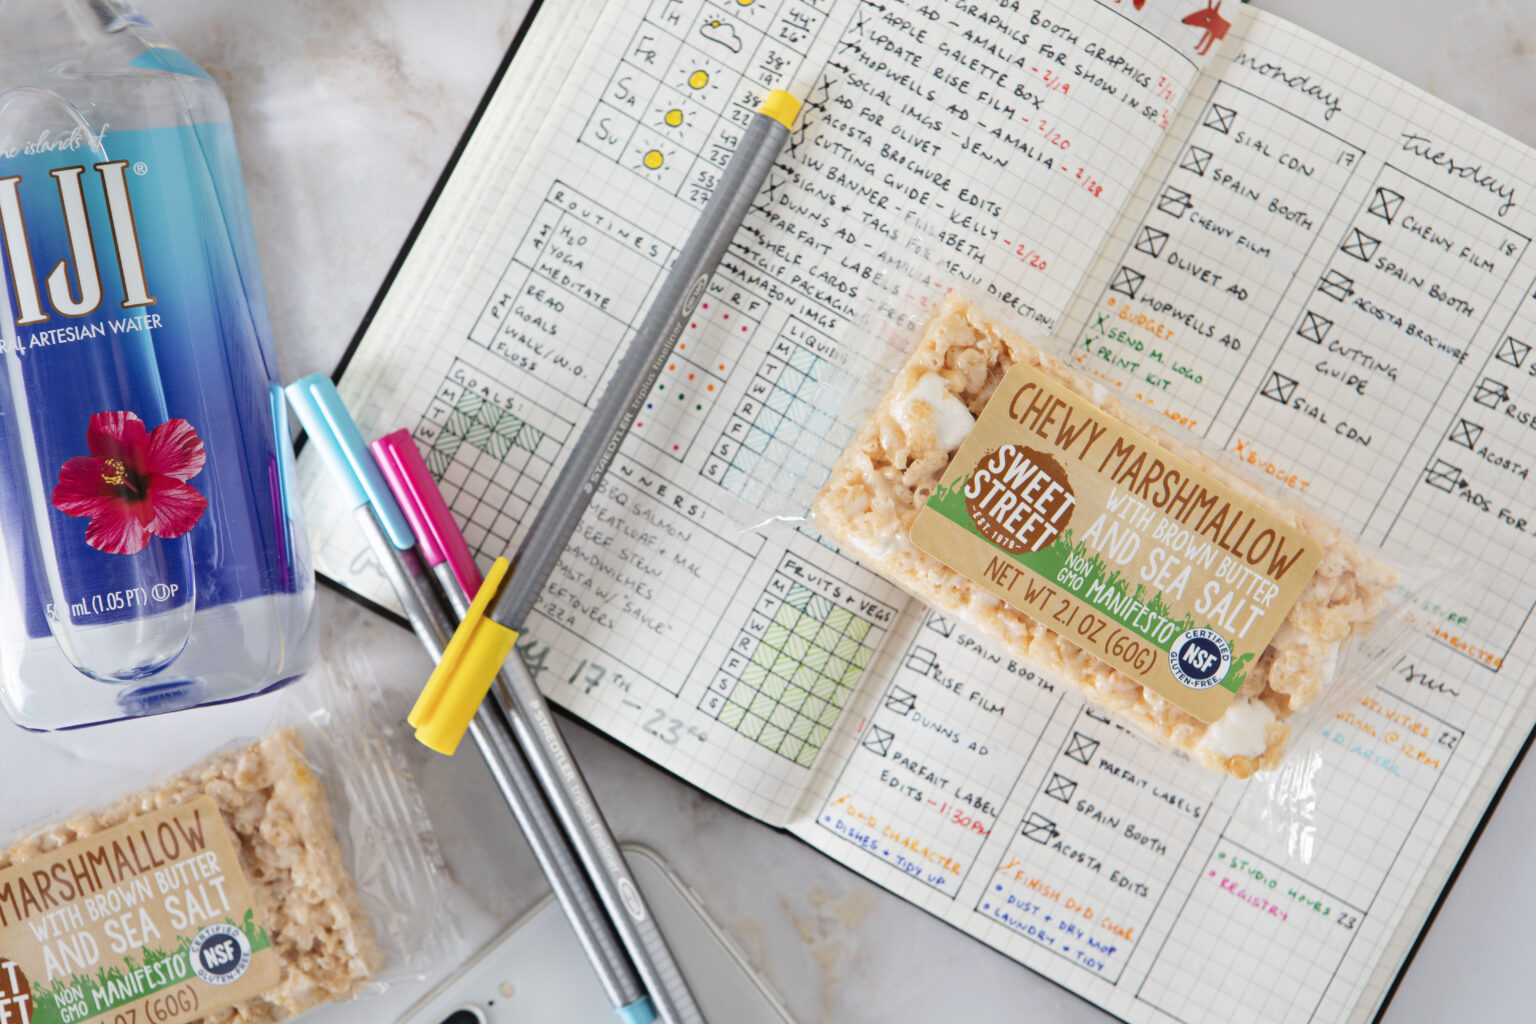 the islands of
FIJI®
ARTESIAN WATER
mL (1.05 PT) UP
TH
FR
SA
SU
44°
26°
38°
19°
38
22
47
25
53
27
BOOTH GRAPHICS
GRAPHICS FOR SHOW IN SP.
AD - AMALIA - 2/19
APPLE GALETTE BOX
UPDATE RISE FILM - 2/20
HOPWELLS AD - AMALIA - 2/28
SOCIAL IMGS - JENN
AD FOR OLIVET
ACOSTA BROCHURE EDITS
CUTTING GUIDE - KELLY - 2/20
1W BANNER - ELISABETH
SIGNS + TAGS FOR MENU DIRECTIONS
DUNNS AD - AMALIA
PARFAIT LABELS
SHELF CARDS
TGIF PACKAGING - FRED
AMAZON IMGS
ROUTINES
AM
H2O
YOGA
MEDITATE
PM
READ
GOALS
WALK/W.O.
FLOSS
W R F
GOALS:
M
T
W
LIQUID
M
T
W
R
F
S
S
NERS:
BBQ SALMON
MEATLOAF + MAC
BEEF STEW
SANDWICHES
PASTA W/ SAUCE
LEFTOVERS
PIZZA
17TH
- 23RD
FRUITS + VEGS
M
T
W
R
F
S
S
monday
17
SIAL CDN
SPAIN BOOTH
CHEWY FILM
OLIVET AD
HOPWELLS AD
BUDGET
SEND M. LOGO
PRINT KIT
tuesday
18
CHEWY FILM
SPAIN BOOTH
ACOSTA BROCHURE
CUTTING
GUIDE
SIAL CDN
BUDGET
RISE
ACOSTA
ADS FOR
SPAIN BOOTH
RISE FILM
DUNNS AD
PARFAIT LABEL
EDITS - 1:30PM
D+D CHARACTER
DISHES + TIDY UP
PARFAIT LABELS
SPAIN BOOTH
ACOSTA EDITS
FINISH D+D CHAR
DUST + DRY MOP
LAUNDRY + TIDY
STUFF
CHARACTER
sun
22
@ 12PM
STUDIO HOURS
REGISTRY
23
STAEDTLER triplus fineliner
STAEDTLER triplus fineliner
CHEWY MARSHMALLOW
WITH BROWN BUTTER
AND SEA SALT
SWEET
STREET
-EST. 1979-
NON
GMO MANIFESTO®
NET WT 2.1 OZ (60G)
CERTIFIED
NSF
GLUTEN-FREE
MARSHMALLOW
WITH BROWN BUTTER
AND SEA SALT
NON
GMO MANIFESTO®
OZ (60G)
CERTIFIED
NSF
GLUTEN-FREE